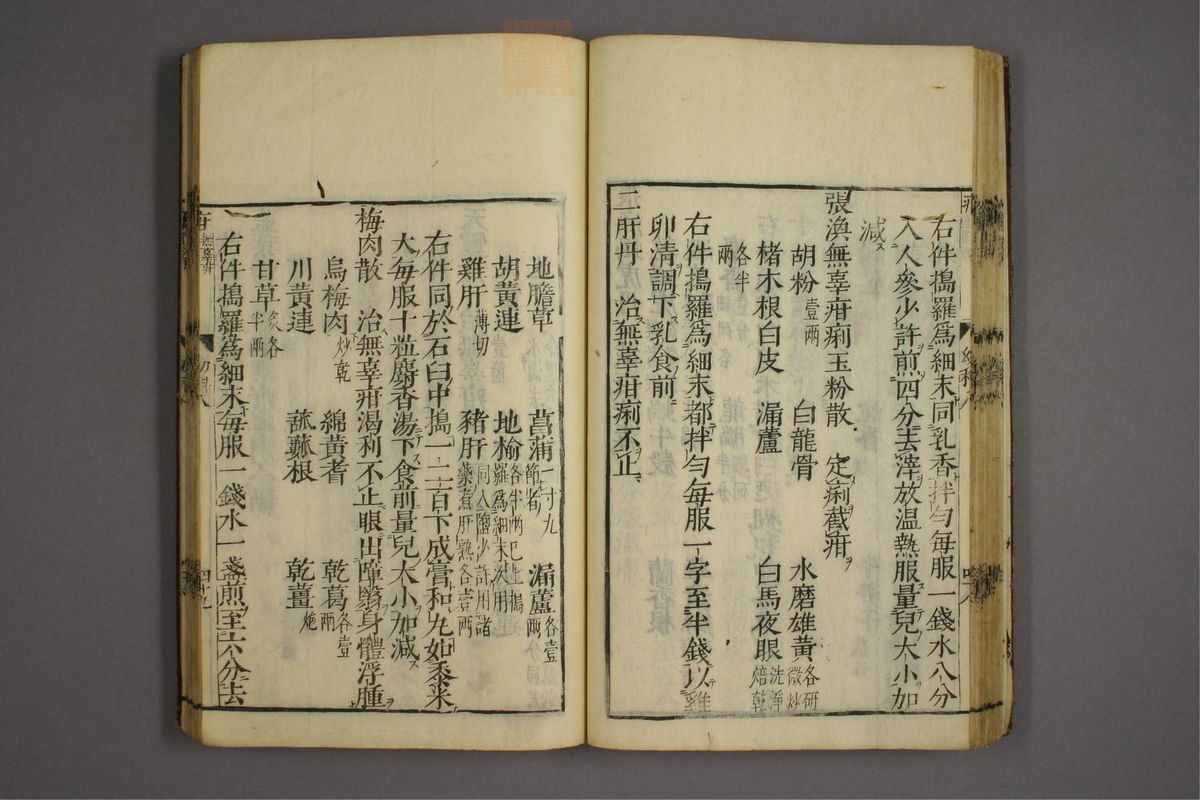 右件搗羅爲細末同乳香拌勻每服一錢水八分
入人參少許前四分去滓放温熱服量兒大小加
減
張渙無辜疳痢玉粉散 定痢截疳
胡粉壹兩 白龍骨 水磨雄黃各研微炒
楮木根白皮 漏蘆 白馬夜眼洗淨焙乾
各半兩
右件搗羅爲細末都拌勻每服一字至半錢以雞
卵清調下乳食前
二肝丹 治無辜疳痢不止
地膽草 菖蒲一寸九節者 漏蘆各壹兩
胡黃連 地榆各半兩已上搗羅爲細末次用
雞肝薄切 豬肝同入鹽少許用諸藥煮肝熟各壹兩
右件同於石臼中搗一二百下成膏和丸如黍米
大每服十粒麝香湯下食前量兒大小加減
梅肉散 治無辜疳渴利不止眼出障翳身體浮腫
烏梅肉炒乾 綿黃耆 乾葛各壹兩
川黃連 𤬛根 乾薑炮
甘草炙各半兩
右件搗羅爲細末每服一錢水一盞煎至六分去